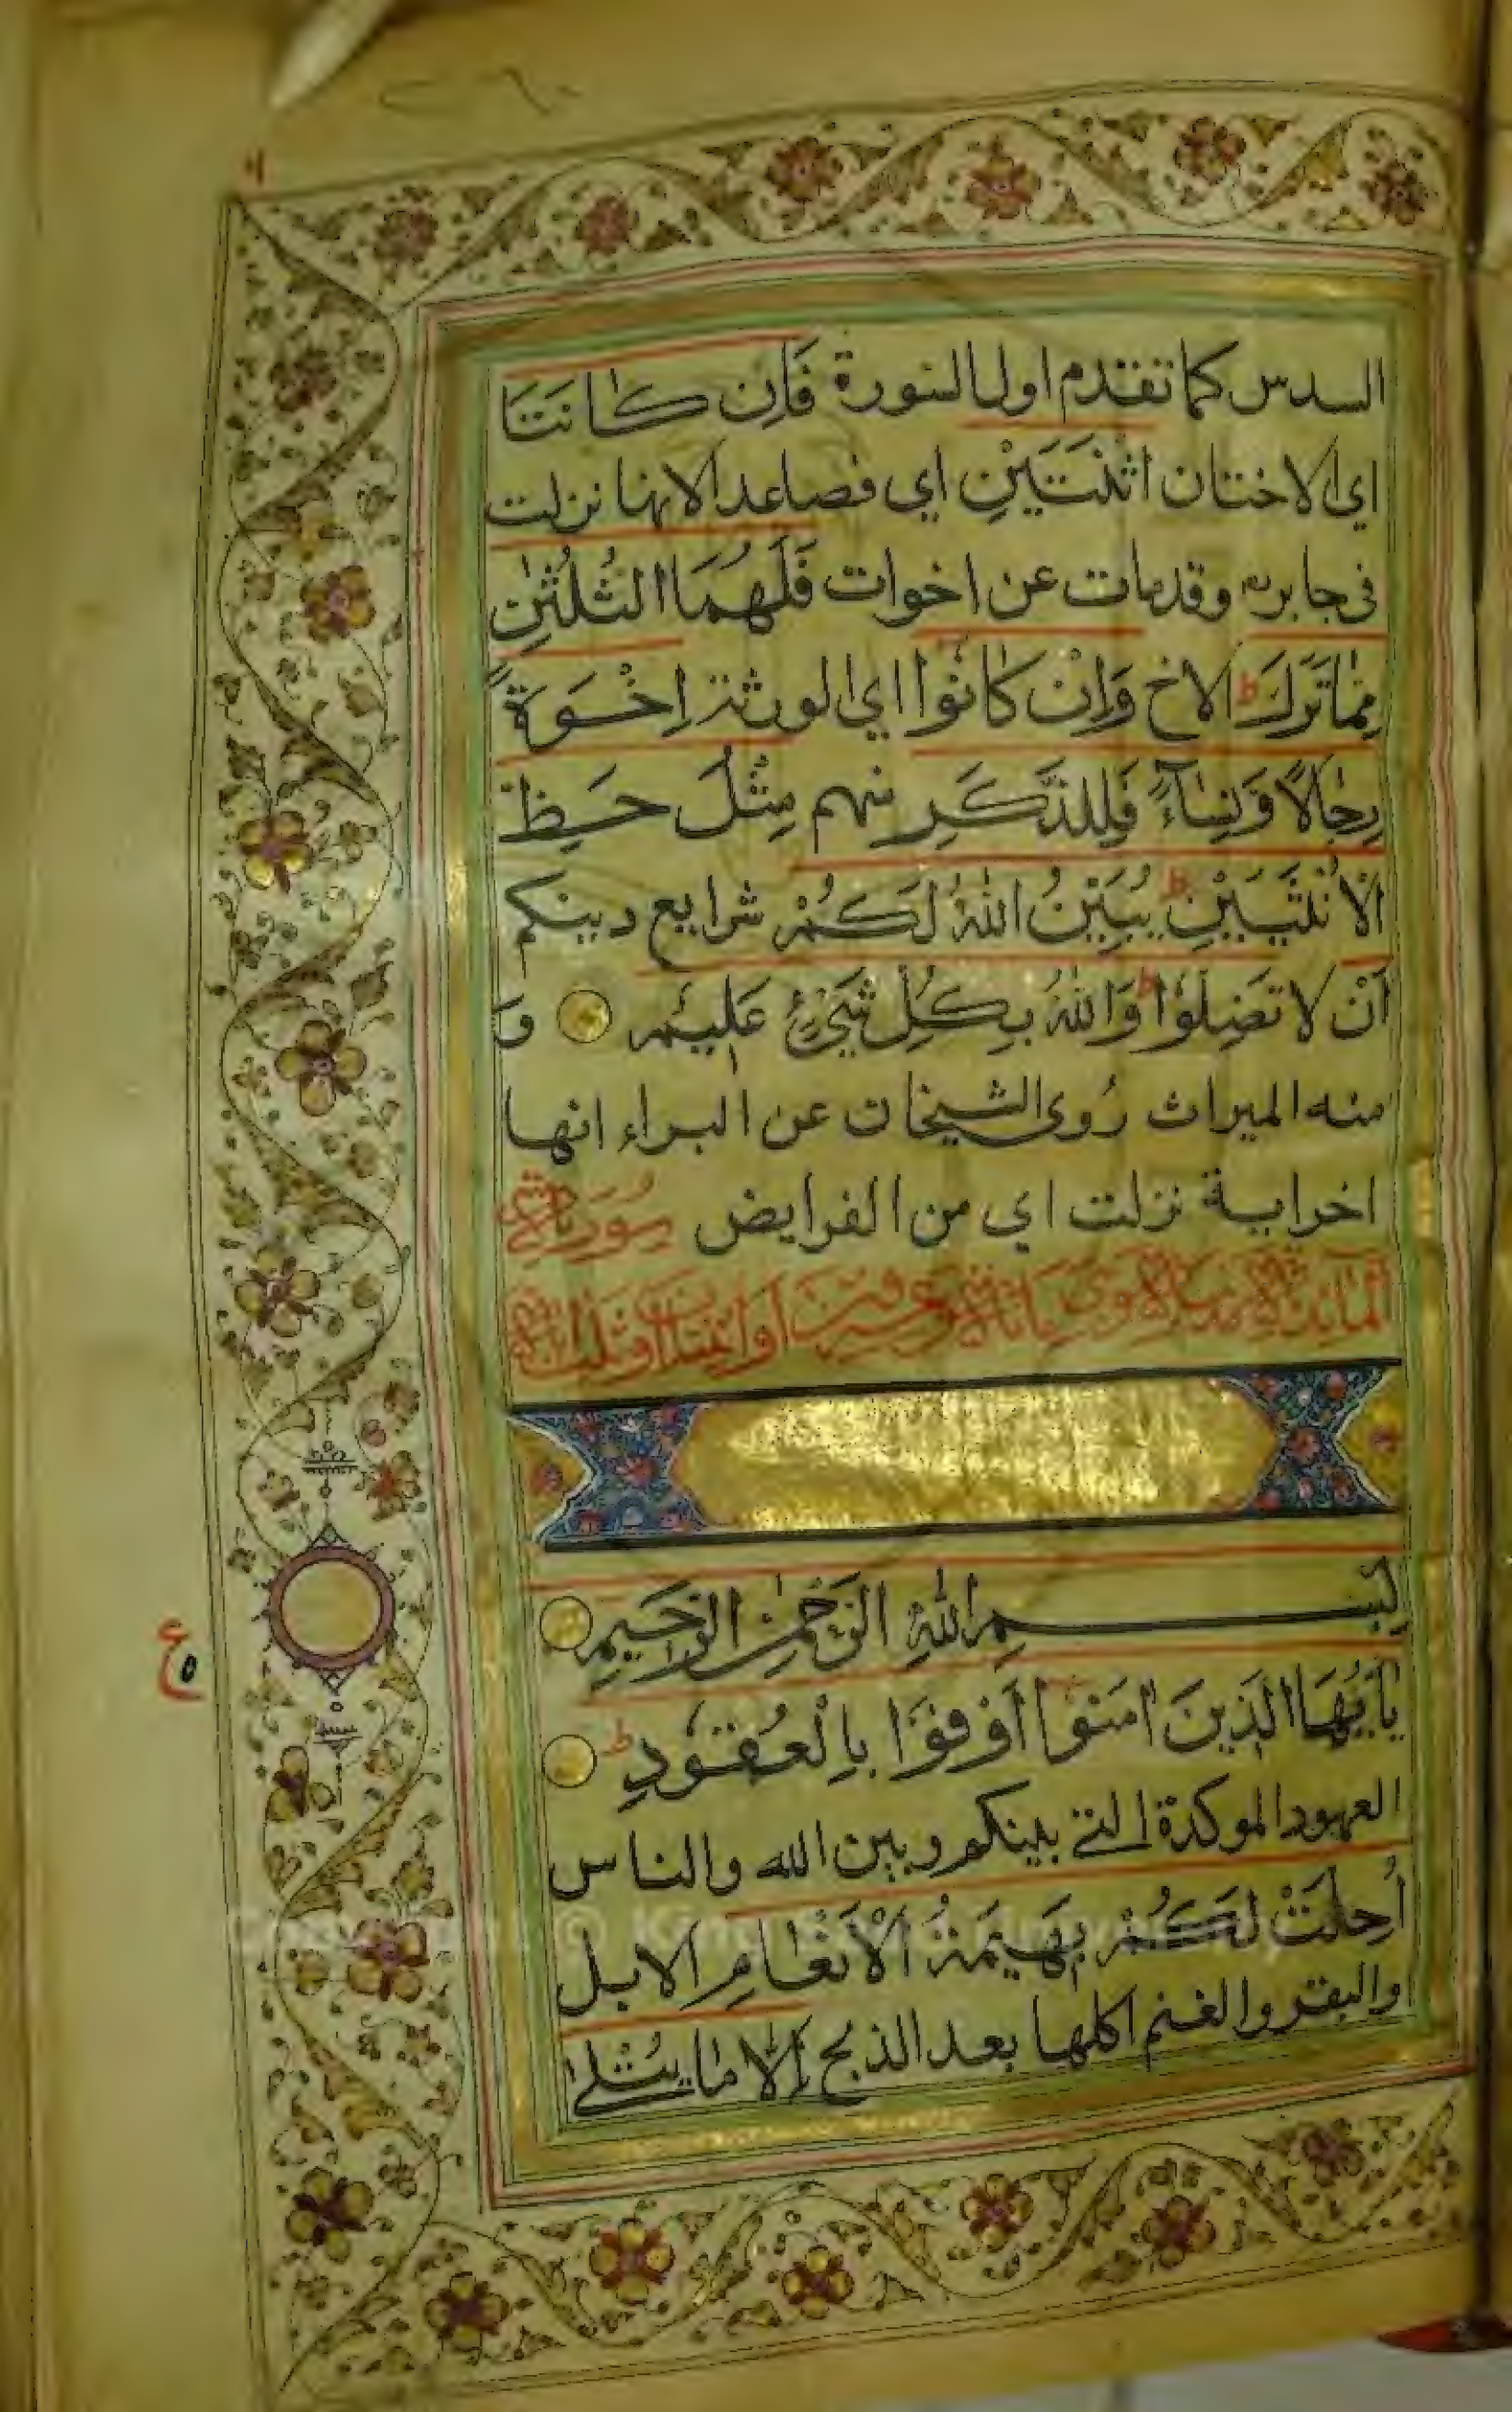 السدس كما تقدم اول السورة فَاِن كَانَتَا
اي الاختان اثْنَتَيْنِ اي فصاعدا لانها نزلت
فى جابر وقد مات عن اخوات فَلَهُمَا الثُلُثٰنِ
مِمَّا تَرَكَ ط الاخ وَاِنْ كَانُوا اي الورثة اِخْوَةً
رِجَالًا وَّنِسَآءً فَلِلذَّكَرِ منهم مِثْلُ حَظِّ
الْاُنْثَيَيْنِ ط يُبَيِّنُ اللهُ لَكُمْ شرايع دينكم
اَنْ لا تَضِلُّوْا ط وَاللهُ بِكُلِّ شَيْءٍ عَلِيْمٌ وَ
منه الميراث رُوى الشيخان عن البراء انها
اخر اية نزلت اي من الفرايض سُورَة
المائدة
بِسْمِ اللهِ الرَّحْمٰنِ الرَّحِيْمِ
يٰاَيُّهَا الَّذِينَ اٰمَنُوْا اَوْفُوْا بِالْعُقُوْدِ ط
العهود الموكدة التى بينكم وبين الله والناس
اُحِلَّتْ لَكُمْ بَهِيْمَةُ الْاَنْعَامِ الابل
والبقر والغنم اكلها بعد الذبح اِلَّا مَا يُتْلٰى
ع
٥